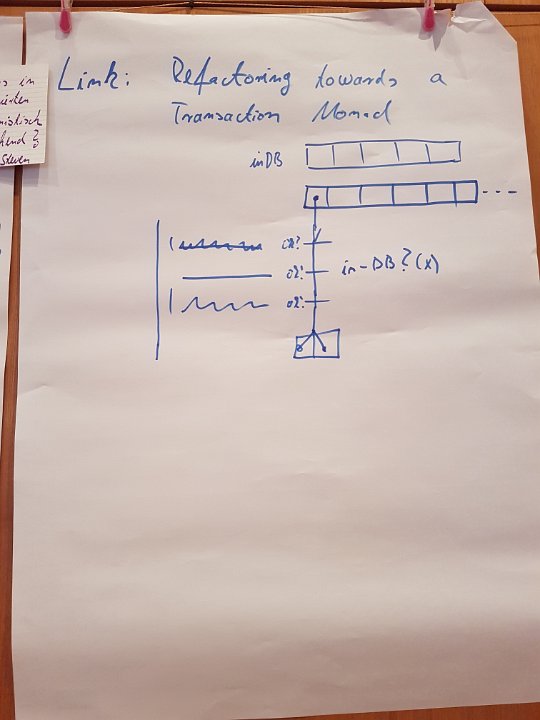 Link: Refactoring towards a
Transaction Monad
inDB
ok?
ok? in-DB?(x)
ok?
s in
ierten
mistisch
hend?
Steven